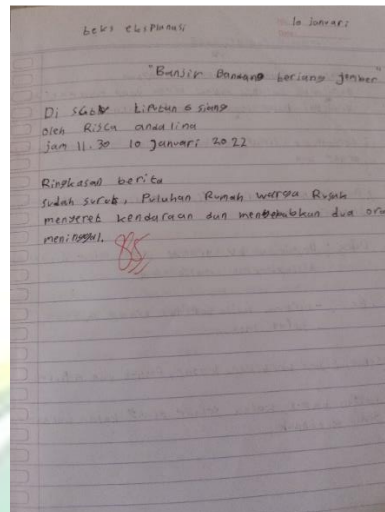 teks eksplanasi 10 januari
"Banjir Bandang terjang jember"
Di SCTV Liputan 6 siang
oleh Risca andalina
jam 11.30 10 Januari 2022
Ringkasan berita
sudah surut, Puluhan Rumah warga Rusak
menyeret kendaraan dan menyebabkan dua ora
meninggal.
85